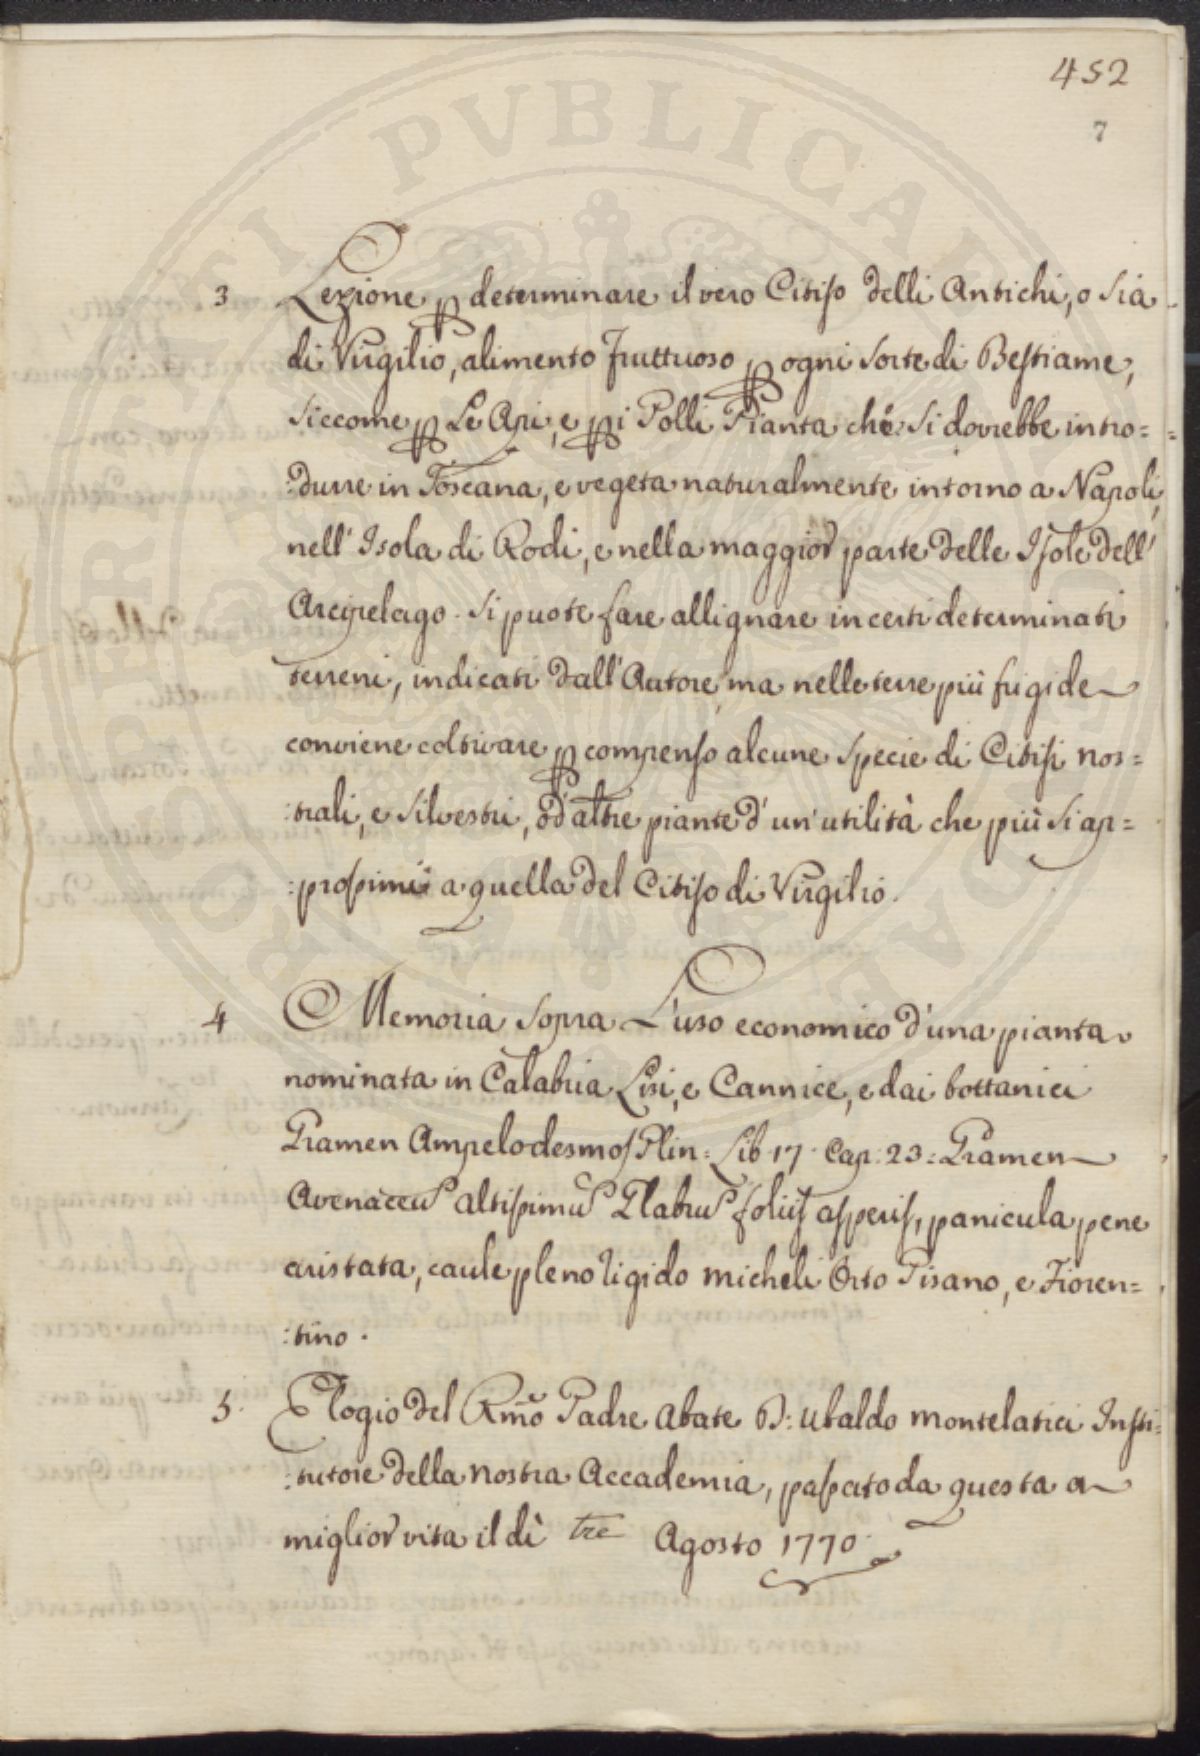 452
7
3 Lezione p determinare il vero Citiso delli Antichi, o sia
di Virgilio, alimento fruttuoso p ogni sorte di Bestiame,
siccome p Le Api, e p i Polli Pianta che si dovrebbe intro=
:durre in Toscana, e vegeta naturalmente intorno a Napoli,
nell' Isola di Rodi, e nella maggior parte delle Isole dell'
Arcipelago. Si puote fare allignare in certi determinati
terreni, indicati dall' Autore, ma nelle terre più frigide
conviene coltivare p compenso alcune specie di Citisi nos=
:trali, e silvestri, od' altre piante d' un' utilità che più si ap=
:prossimi a quella del Citiso di Virgilio.
4 Memoria sopra L'uso economico d'una pianta
nominata in Calabria Lisi, e Cannice, e dai bottanici
Gramen Ampelodesmos Plin: Lib. 17. Cap: 23: Gramen
Avenaceu altissimu Glabru foliis asperis, panicula pene
aristata, caule pleno rigido micheli Orto Pisano, e Fioren=
:tino.
5. Elogio del Rmo Padre Abate D: Ubaldo Montelatici Insti=
:tutore della nostra Accademia, passato da questa a
miglior vita il dì tre Agosto 1770.
PROSPERITATI PVBLICAE